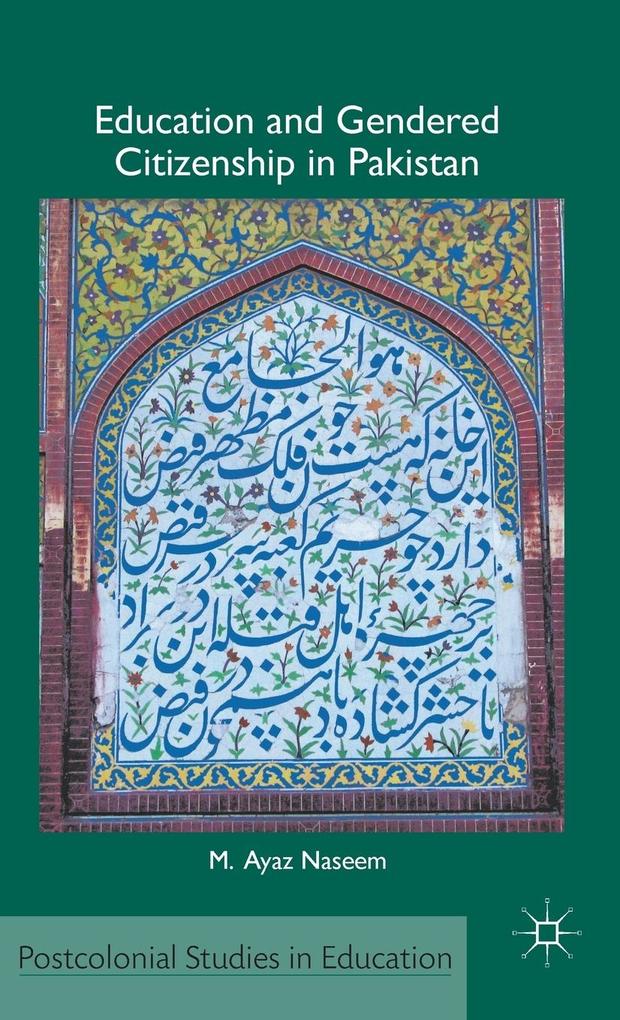 Education and Gendered
Citizenship in Pakistan
هو الجامع
این خانه که هست چون فلک مظهر فیض
دارد چو حریم کعبه در فیض
بر چهرهٔ اهل قبله این در
تا حشر کشاده باد همچون در فیض
M. Ayaz Naseem
Postcolonial Studies in Education